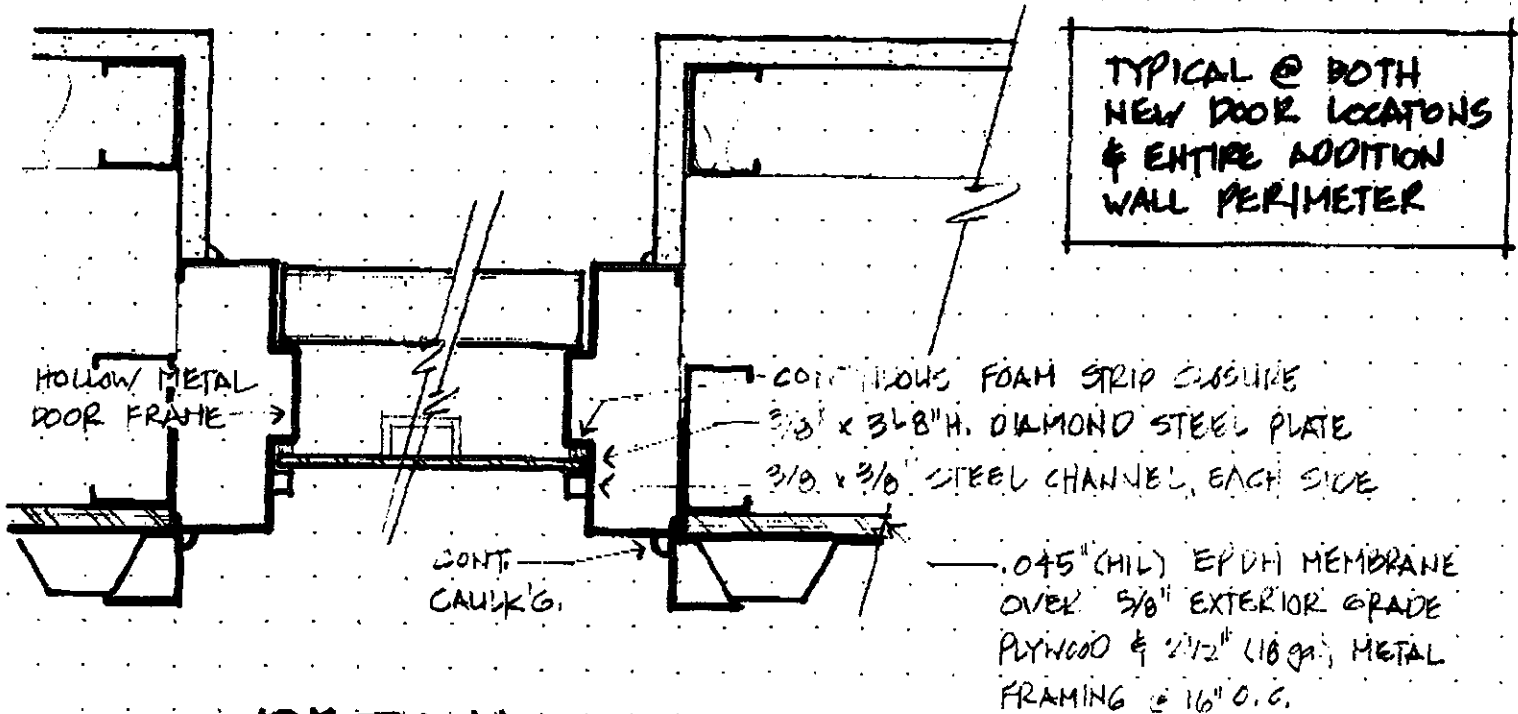 TYPICAL @ BOTH
NEW DOOR LOCATONS
& ENTIRE ADDITION
WALL PERIMETER
HOLLOW METAL
DOOR FRAME
FOAM STRIP CLOSURE
DIAMOND STEEL PLATE
3/8 x 3/8" STEEL CHANNEL, EACH SIDE
CONT.
CAULK'G.
.045" (MIL) EPDM MEMBRANE
OVER 5/8" EXTERIOR GRADE
PLYWOOD & (18 ga.) METAL
FRAMING @ 16" O.C.